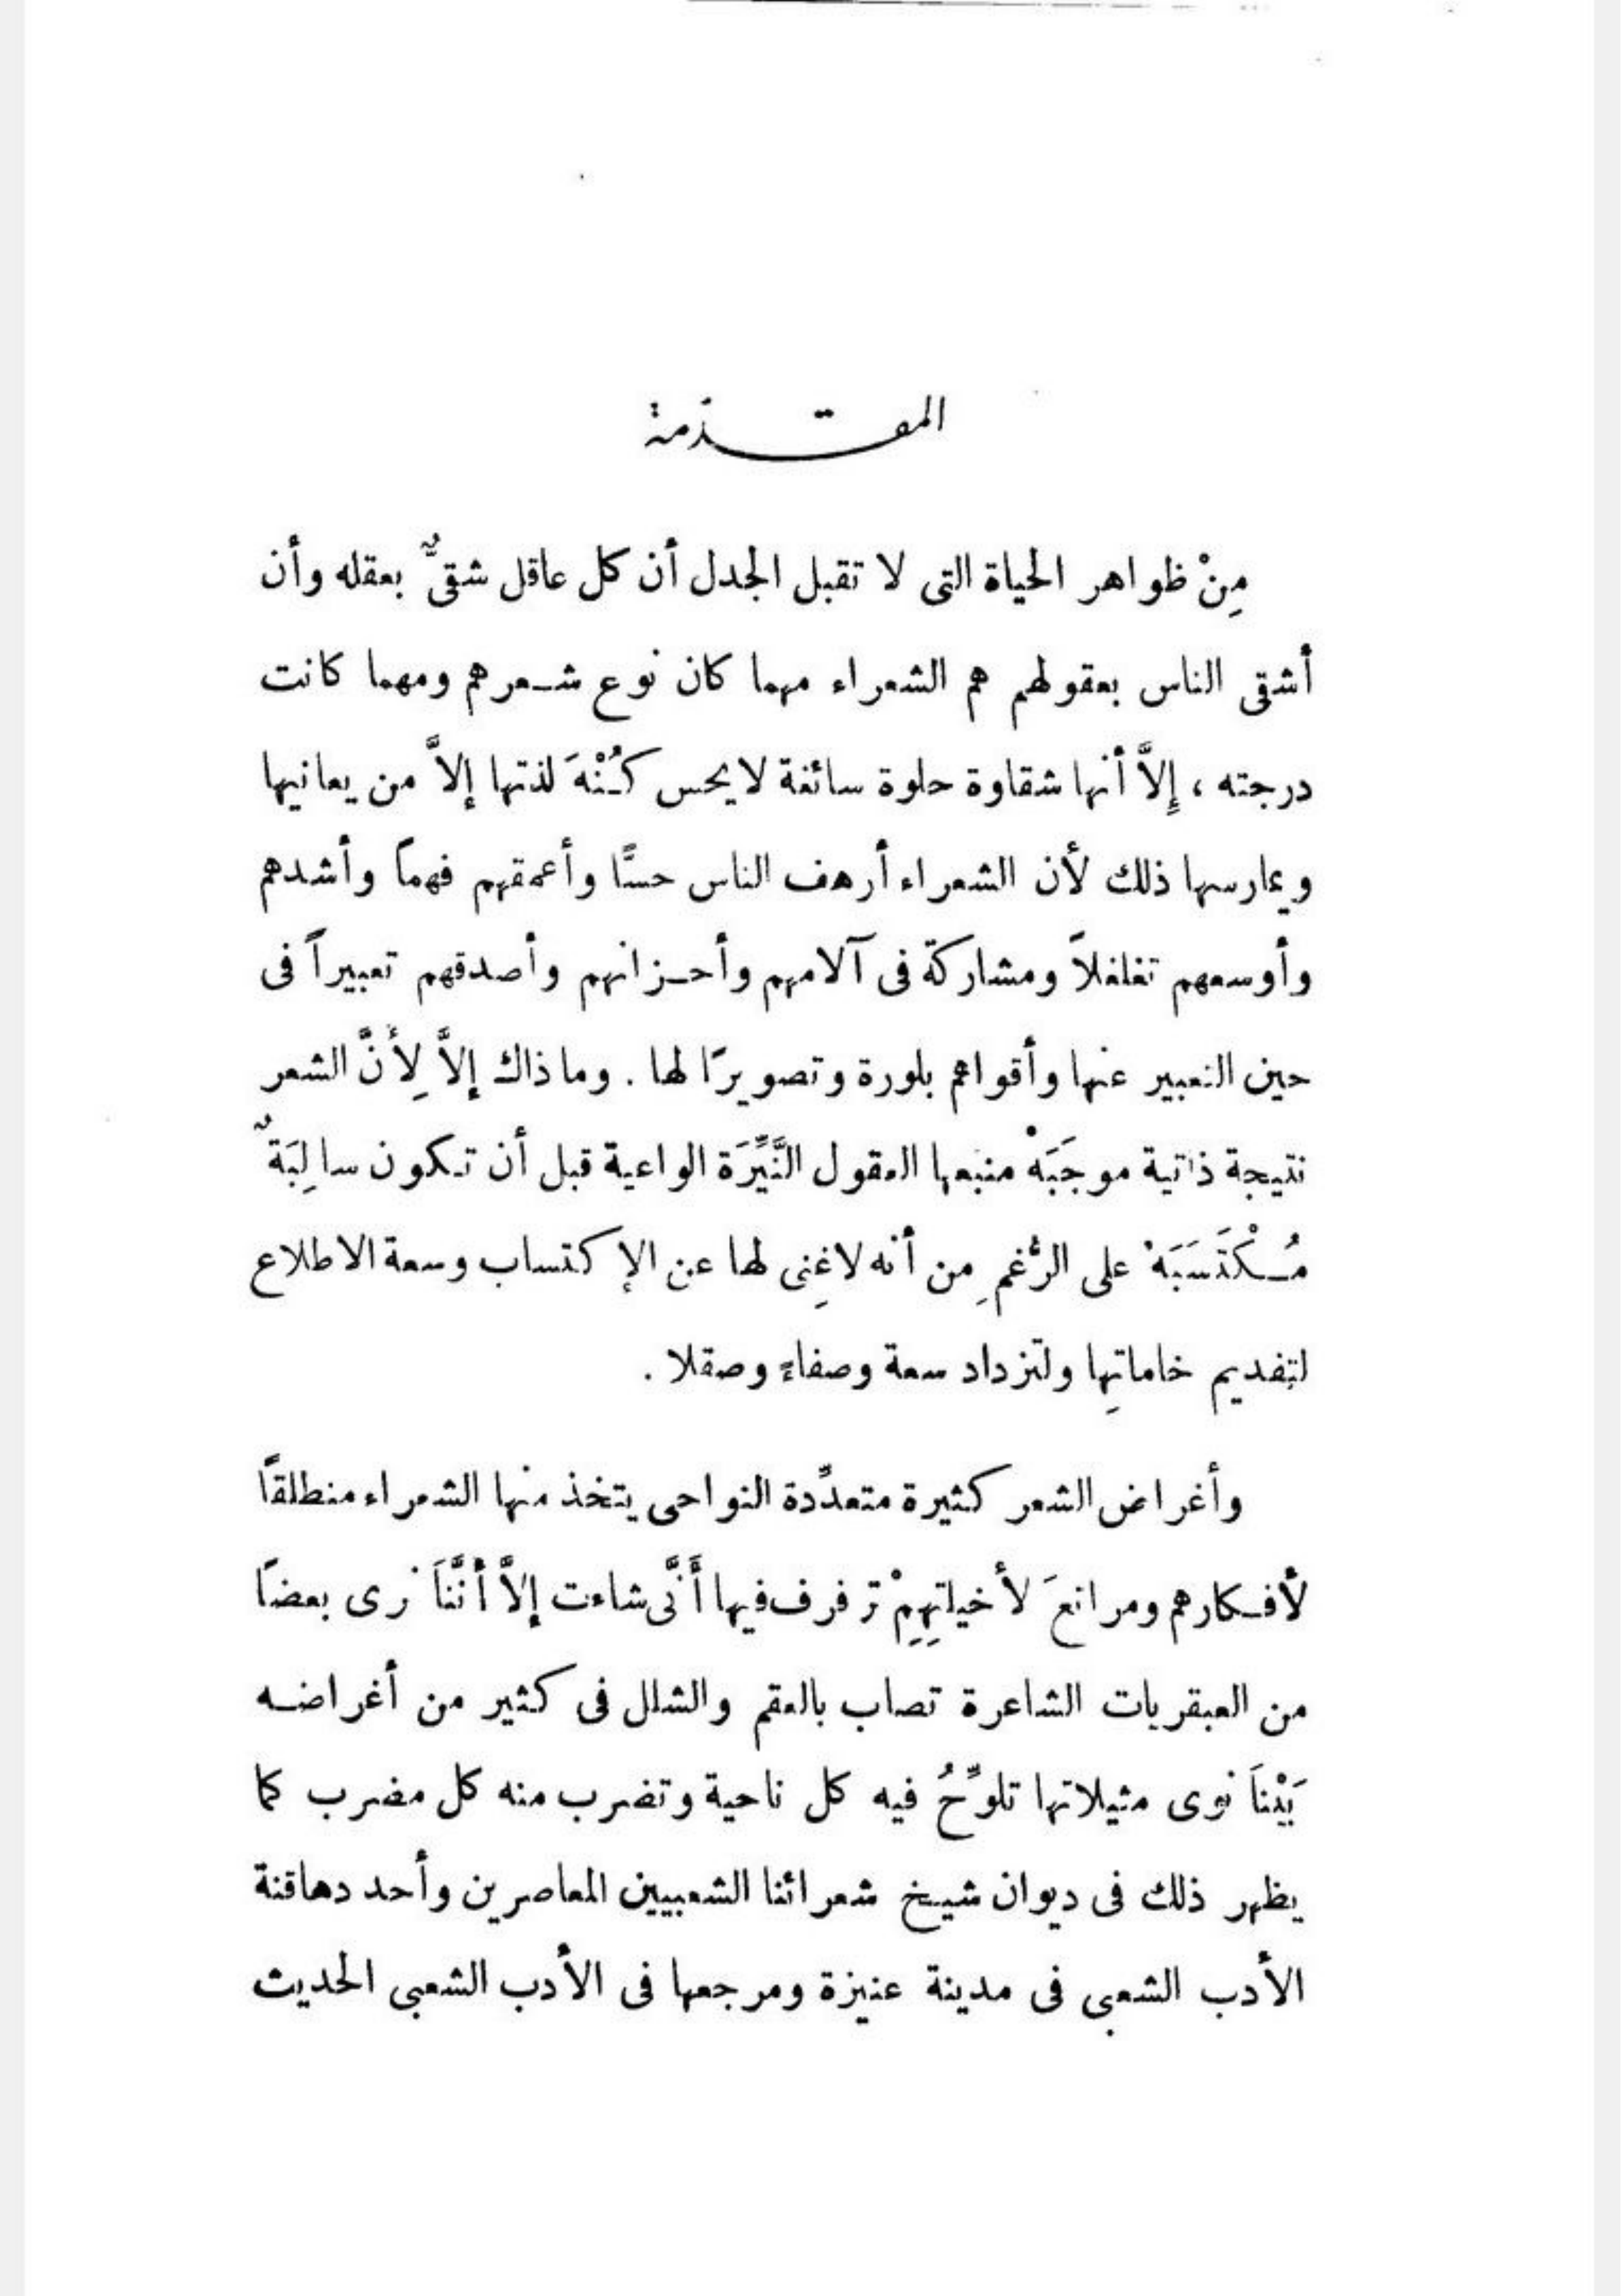 المقدمة
مِنْ ظواهر الحياة التى لا تقبل الجدل أن كل عاقل شقىٌّ بعقله وأن
أشقى الناس بعقولهم هم الشعراء مهما كان نوع شـعرهم ومهما كانت
درجته ، إِلاَّ أنها شقاوة حلوة سائغة لايحس كُـنْهَ لذتها إلاَّ من يعانيها
ويمارسها ذلك لأن الشعراء أرهف الناس حسًّا وأعمقهم فهماً وأشدهم
وأوسعهم تغلغلاً ومشاركة فى آلامهم وأحـزانهم وأصدقهم تعبيراً فى
حين التعبير عنها وأقواهم بلورة وتصويرًا لها . وماذاك إلاَّ لِأَنَّ الشعر
نتيجة ذاتية موجَبَةْ منبعها العقول النَّيِّرَة الواعية قبل أن تـكون سالِبَةٌ
مُـكْتَسَبَةْ على الرُّغمِ من أنه لاغِنى لها عن الإكتساب وسعة الاطلاع
لتقديم خاماتِها ولتزداد سعة وصفاءً وصقلا .
وأغراض الشعر كثيرة متعدِّدة النواحى يتخذ منها الشعراء منطلقاً
لأفـكارهم ومراتعَ لأخيلتِهِمْ ترفرف فيها أَنَّى شاءت إلاَّ أَنَّنَا نرى بعضاً
من العبقريات الشاعرة تصاب بالعقم والشلل فى كثير من أغراضـه
بَيْنَا نرى مثيلاتها تلوِّحُ فيه كل ناحية وتضرب منه كل مضرب كما
يظهر ذلك فى ديوان شيـخ شعرائنا الشعبيين المعاصرين وأحد دهاقنة
الأدب الشعبى فى مدينة عنيزة ومرجعها فى الأدب الشعبى الحديث